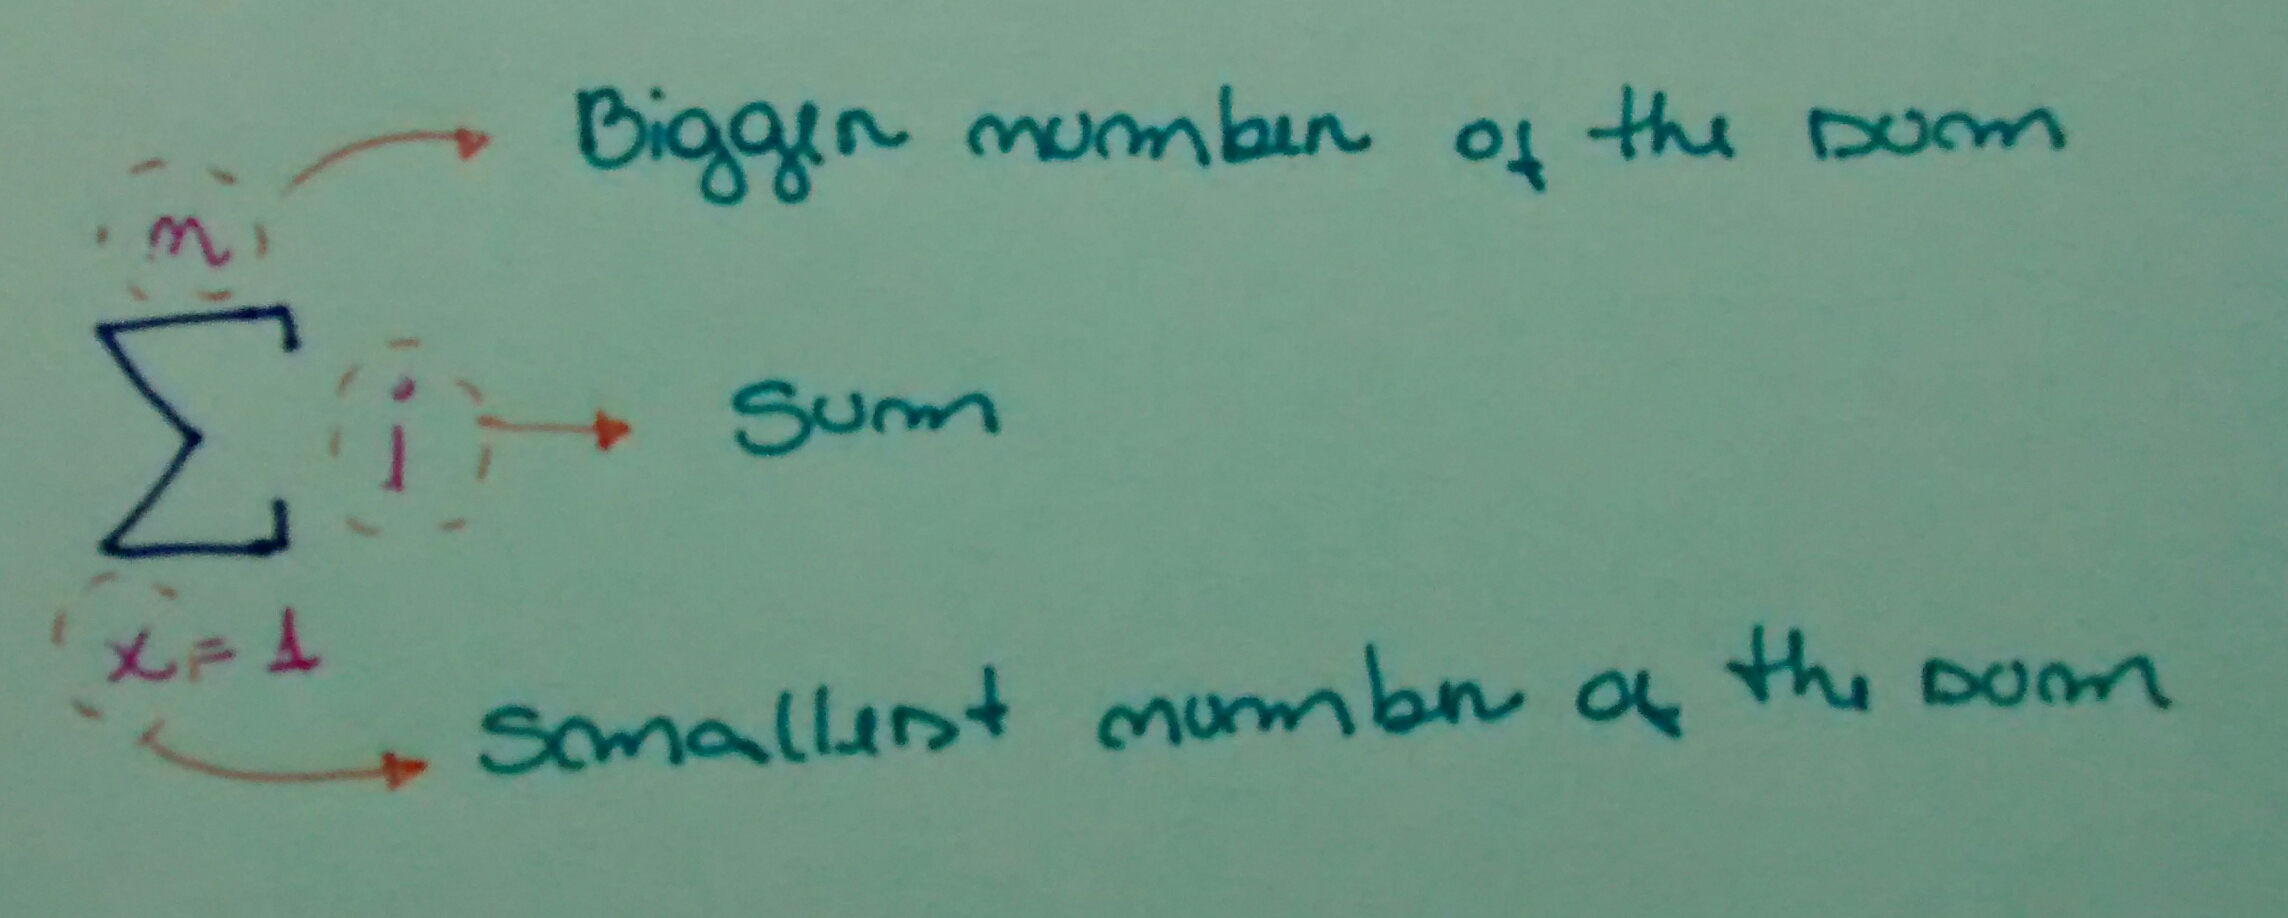 n
Bigger number of the sum
Σ i
Sum
x = 1
Smallest number of the sum